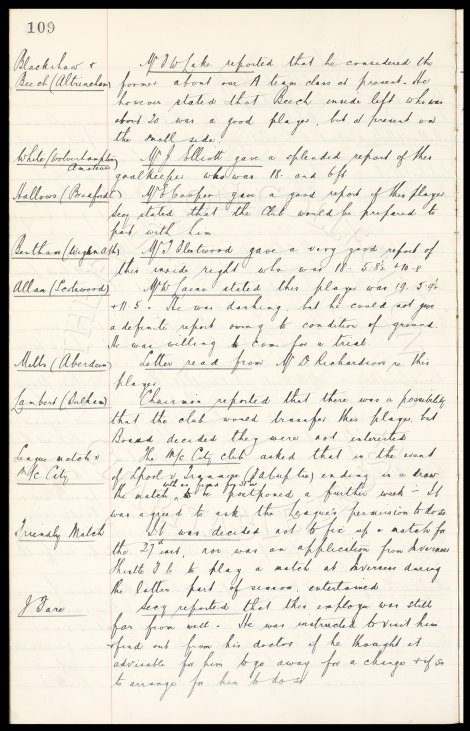 109
Blackshaw & Mr J W Lake reported that he considered the
Beech (Altrincham) former about our A team class at present. He
however stated that Beech inside left who was
about 20 was a good player, but at present on
the small side.
White (Wolverhampton Amateur) Mr J Elliott gave a splendid report of this
goalkeeper who was 18. and 6ft
Hallows (Bradford) Mr E Cooper gave a good report of this player
Secy stated that the Club would be prepared to
part with him
Bentham (Wigan Ath) Mr J Fleetwood gave a very good report of
this inside right who was 18. 5.8½ + 10-8
Allan (Lockwood) Mr W stated this player was 19. 5.9½
+ 11.5. He was dashing but he could not give
a definite report owing to condition of ground.
He was willing to come for a trial
Mills (Aberdeen) Letter read from Mr D Richardson re this
player
Lambert (Fulham) Chairman reported that there was a possibility
that the club would transfer this player, but
Board decided they were not interested
League match v The M/c City club asked that in the event
M/c City of Lpool v (Cup tie) ending in a draw
the match be postponed a further week - It
was agreed to ask the League's permission to do so
Friendly Match It was decided not to fix up a match for
the 27th inst, nor was an application from Inverness
Thistle F.C to play a match at Inverness during
the latter part of season, entertained
J Secy reported that this employee was still
far from well. He was instructed to visit him
+ find out from his doctor if he thought it
advisable for him to go away for a change + if so
to arrange for him to do so